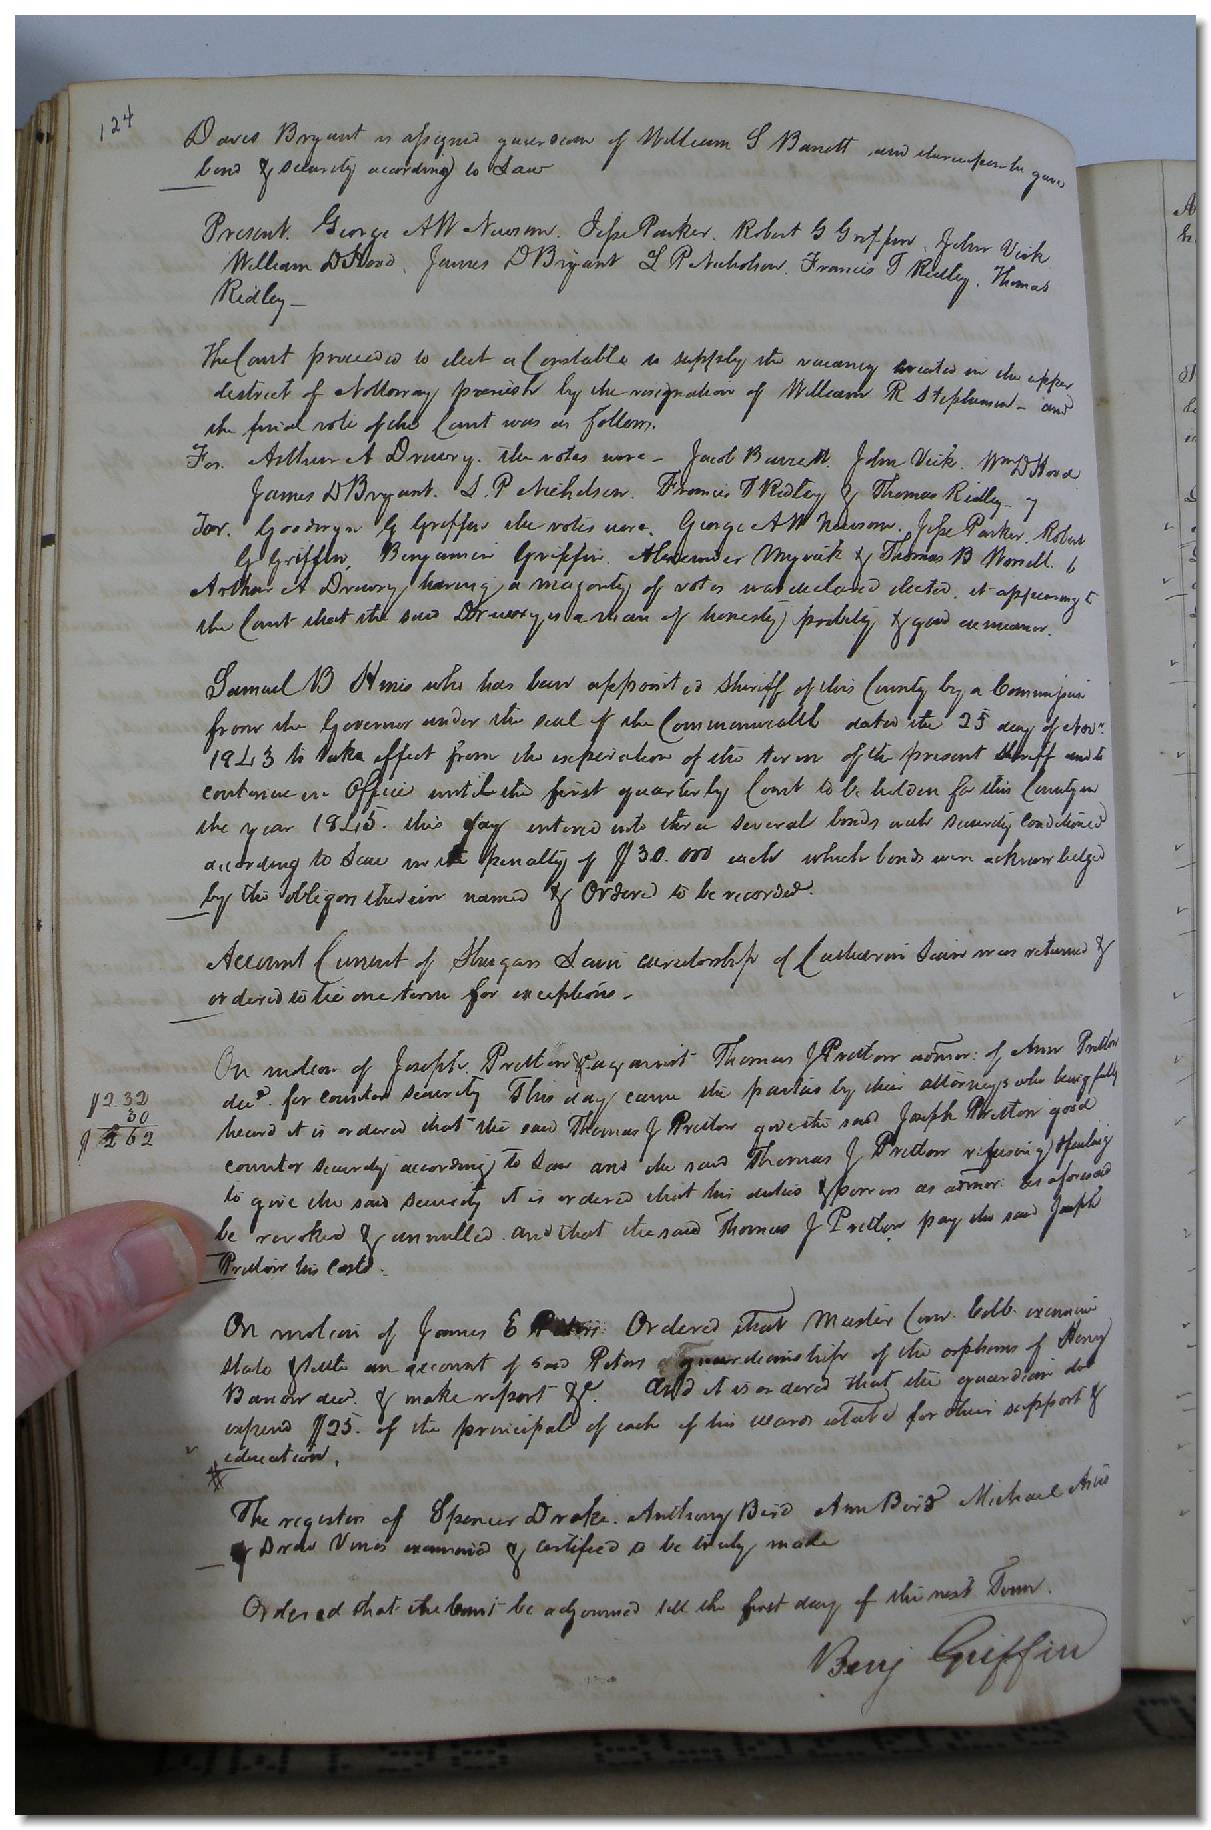 124
Davis Bryant is assigned guardian of William S Barrett and thereupon he gave
bond & security according to Law
Present. George A W Newsom. Jesse Parker. Robert G Griffin. John Vick
William D Hood. James D Bryant L P Nicholson. Francis T Ridley. Thomas
Ridley —
The Court proceeded to elect a Constable to supply the vacancy created in the upper
district of Nottoway parrish by the resignation of William R Stephenson - and
the final vote of the Court was as follows.
For. Arthur A Drewry. the votes were - Jacob Barrett. John Vick. Wm D Hood
James D Bryant. L. P Nicholson. Francis T Ridley & Thomas Ridley - 7
For. Goodwyn G Griffin the votes were. George A W Newsom. Jesse Parker. Robert
G Griffin. Benjamin Griffin. Alexander Myrick & Thomas B Worrell. 6
Arthur A Drewry having a majority of votes was declared elected. it appearing to
the Court that the said Drewry is a man of honesty probity & good demeanor.
Samuel B Hines who has been appointed Sheriff of this County by a Commission
from the Governor under the seal of the Commonwealth dated the 25 day of Nov.
1843 to take effect from the expiration of the term of the present Sheriff and to
continue in Office until the first quarterly Court to be holden for this County in
the year 1845. this day entered into three several bonds with security conditioned
according to Law in the penalty of $30.000 each which bonds were acknowledged
by the obligors therein named & Ordered to be recorded.
Account Current of Lain curatorship of Lain was returned &
ordered to lie one term for exceptions.
On motion of Joseph Pretlow & against Thomas J Pretlow admor: of Ann Pretlow
decd. for counter security This day came the parties by their attorneys who being fully
heard it is ordered that the said Thomas J Pretlow give the said Joseph Pretlow good
$2 32
30
$ 2 62
counter security according to Law and the said Thomas J Pretlow refusing & failing
to give the said security it is ordered that his duties & powers as admor: as aforesaid
be revoked & annulled. and that the said Thomas J Pretlow pay the said Joseph
Pretlow his costs.
On motion of James E Peters Ordered that Master Com. Cobb examine
state & settle an account of said Peters guardianship of the orphans of Henry
decd. & make report &c. And it is ordered that the guardian do
expend $25. of the principal of each of his wards estate for their support &
education.
The registers of Spencer Drake. Anthony Bird Ann Bird Michael
& Drew examined & certified to be truly made
Ordered that the Court be adjourned till the first day of the next Term.
Benj Griffin